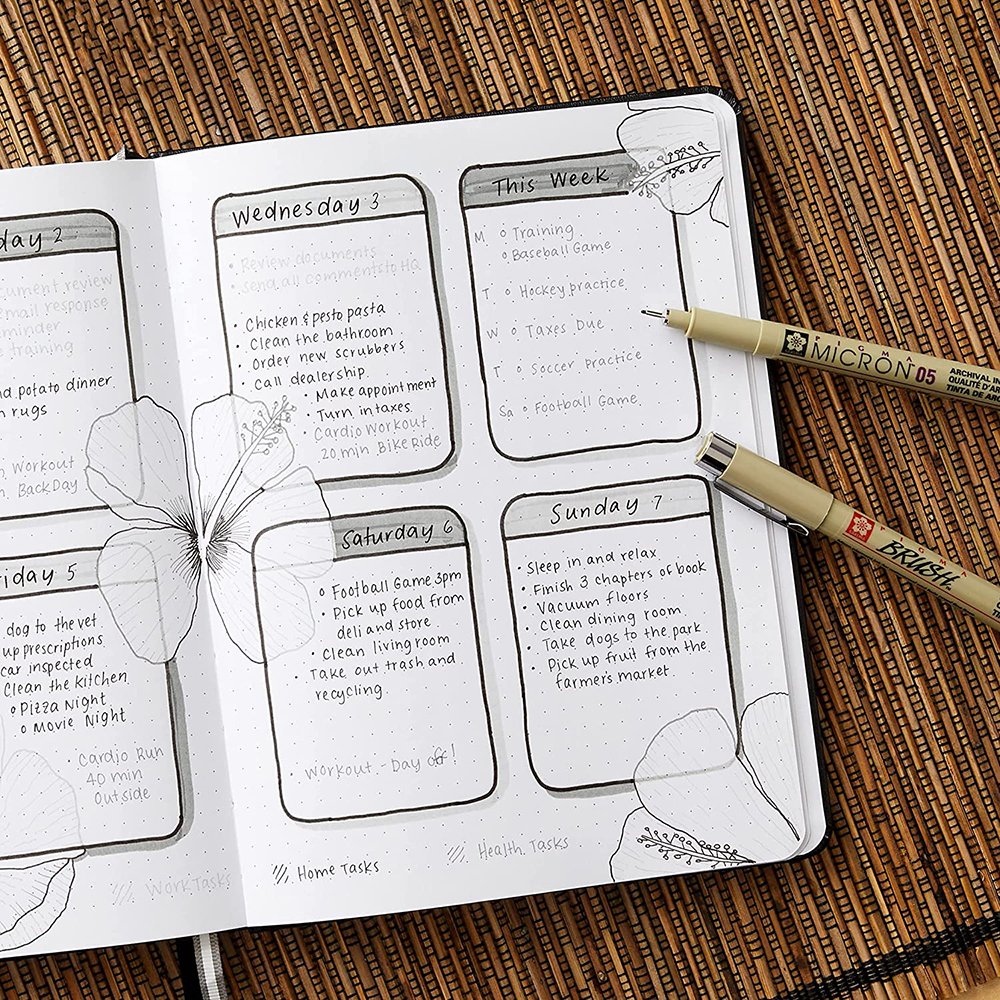 day 2
cument review
email response
eminder
e training
nd potato dinner
n rugs
Workout
Back Day
riday 5
dog to the vet
up prescriptions
car inspected
Clean the kitchen
Pizza Night
Movie Night
Cardio Run
40 min
Outside
Work Tasks
Wednesday 3
• Review documents
• Send all comments to HQ
• Chicken & pesto pasta
• Clean the bathroom
• Order new scrubbers
• Call dealership
• Make appointment
• Turn in taxes
Cardio Workout
20 min Bike Ride
This Week
M o Training
o Baseball Game
T o Hockey practice
W o Taxes Due
T o Soccer Practice
Sa o Football Game
Saturday 6
o Football Game 3pm
• Pick up food from
deli and store
• Clean living room
• Take out trash and
recycling
• Workout - Day off!
Sunday 7
• Sleep in and relax
• Finish 3 chapters of book
• Vacuum floors
• Clean dining room
• Take dogs to the park
• Pick up fruit from the
farmer's market
Home Tasks
Health Tasks
PIGMA
MICRON 05
ARCHIVAL IN
QUALITÉ D'AR
TINTA DE AR
PIGMA
BRUSH